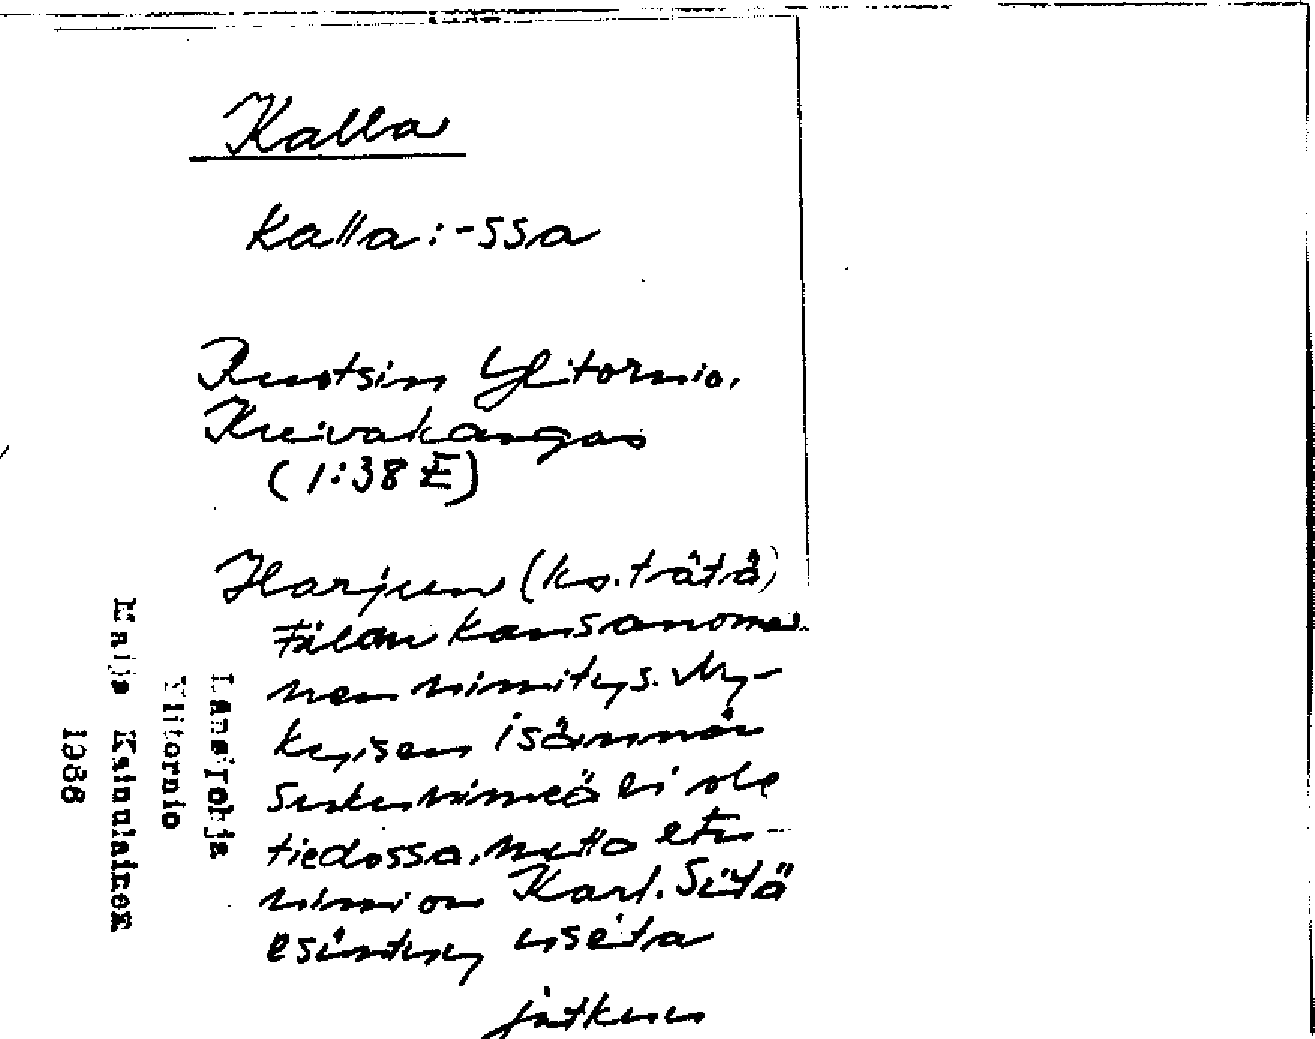 Kalla
Kalla:-ssa
Ruotsin Ylitornio.
Kuivakangas
(1:38 E)
Harjun (ks. tätä)
tilan kansanomai-
nen nimitys. Ny-
kyisen isännän
sukunimeä ei ole
tiedossa, mutta etu-
nimi on Karl. Siitä
esiintyy useita
jatkuu
Länsipohja
Ylitornio
Maija Kainulainen
1988